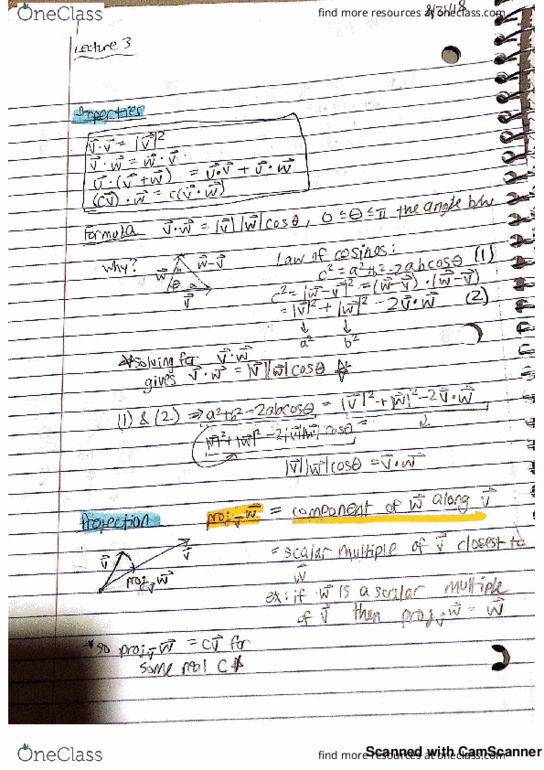 OneClass
find more resources at oneclass.com
8/31/18
Lecture 3
Properties
v⃗·v⃗ = |v⃗|²
v⃗·w⃗ = w⃗·v⃗
u⃗·(v⃗+w⃗) = u⃗·v⃗ + u⃗·w⃗
(cv⃗)·w⃗ = c(v⃗·w⃗)
Formula v⃗·w⃗ = |v⃗||w⃗|cosθ, 0≤θ≤π the angle btw
why? w⃗ w⃗-v⃗ θ v⃗
Law of cosines:
c² = a²+b²-2abcosθ (1)
c² = |w⃗-v⃗|² = (w⃗-v⃗)·(w⃗-v⃗)
= |v⃗|² + |w⃗|² - 2v⃗·w⃗ (2)
↓ ↓
a² b²
☆solving for v⃗·w⃗
gives v⃗·w⃗ = |v⃗||w⃗|cosθ ☆
(1) & (2) ⇒ a²+b²-2abcosθ = |v⃗|²+|w⃗|²-2v⃗·w⃗
|v⃗|²+|w⃗|²-2|v⃗||w⃗|cosθ =
|v⃗||w⃗|cosθ = v⃗·w⃗
Projection proj_v⃗ w⃗ = component of w⃗ along v⃗
v⃗ v⃗ proj_v⃗ w⃗
= scalar multiple of v⃗ closest to
w⃗
ex: if w⃗ is a scalar multiple
of v⃗ then proj_v⃗ w⃗ = w⃗
*so proj_v⃗ w⃗ = cv⃗ for
some real c*
OneClass
find more resources at oneclass.com
Scanned with CamScanner